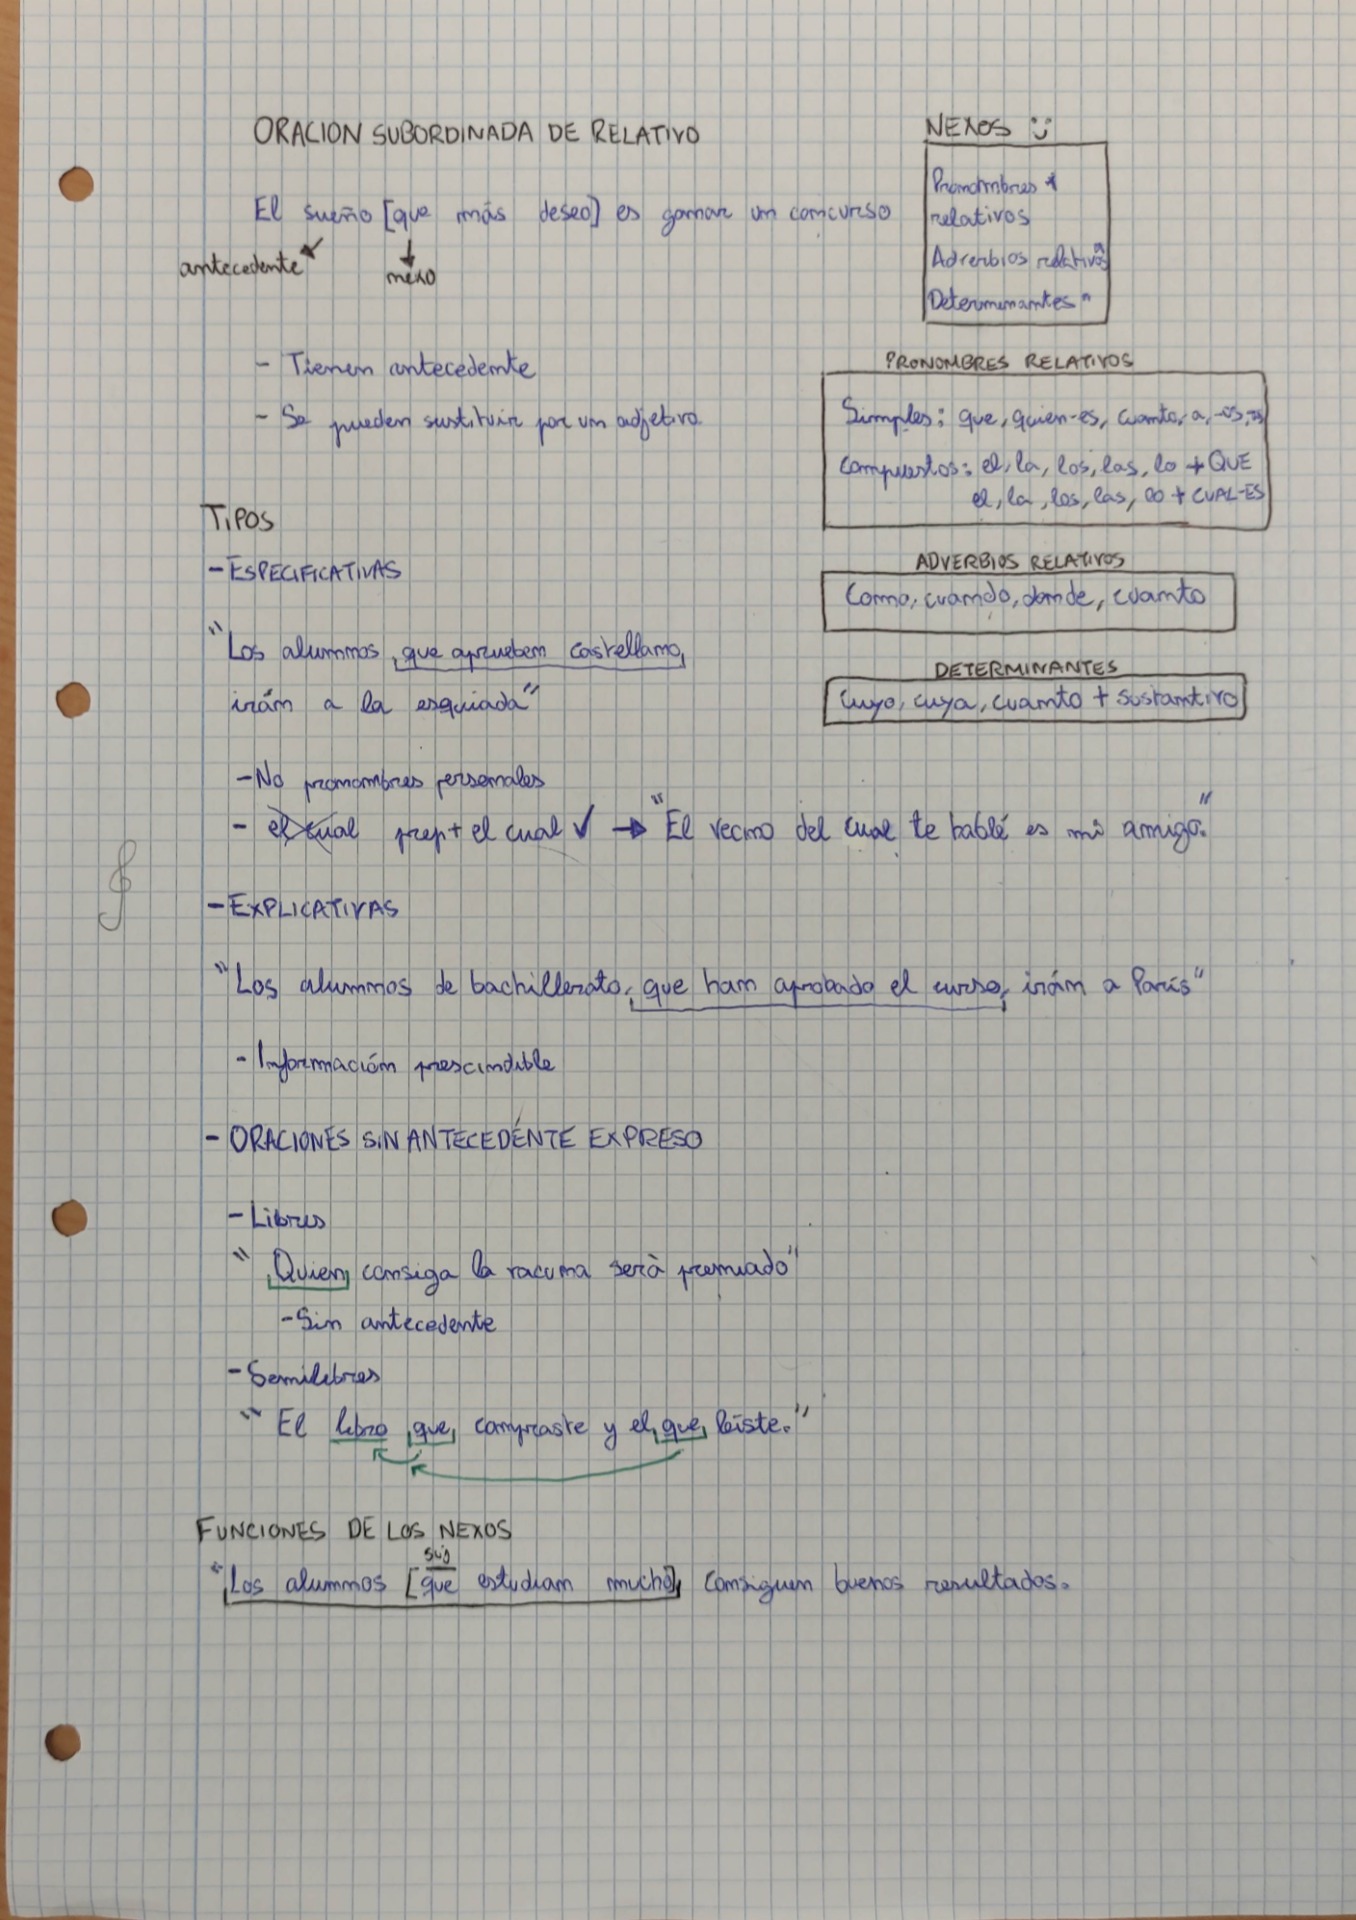 ORACION SUBORDINADA DE RELATIVO
El sueño [que más deseo] es ganar un concurso
antecedente
nexo
- Tienen antecedente
- Se pueden sustituir por un adjetivo
NEXOS
Pronombres
relativos
Adverbios relativos
Determinantes "
PRONOMBRES RELATIVOS
Simples: que, quien-es, cuanto, a, -os, -as
Compuestos: el, la, los, las, lo + QUE
el, la, los, las, lo + CUAL-ES
ADVERBIOS RELATIVOS
Como, cuando, donde, cuanto
DETERMINANTES
Cuyo, cuya, cuanto + sustantivo
TIPOS
- ESPECIFICATIVAS
"Los alumnos que aprueben castellano,
irán a la esquiada"
- No pronombres personales
- el cual prep + el cual ✓ → "El vecino del cual te hablé es mi amigo."
- EXPLICATIVAS
"Los alumnos de bachillerato, que han aprobado el curso, irán a París"
- Información prescindible
- ORACIONES SIN ANTECEDENTE EXPRESO
- Libres
"Quien consiga la vacuna serà premiado"
- Sin antecedente
- Semilibres
"El libro que compraste y el que leíste."
FUNCIONES DE LOS NEXOS
suj
"Los alumnos [que estudian mucho] consiguen buenos resultados.